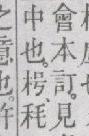 會本訂見
中也枵秏
之意也許